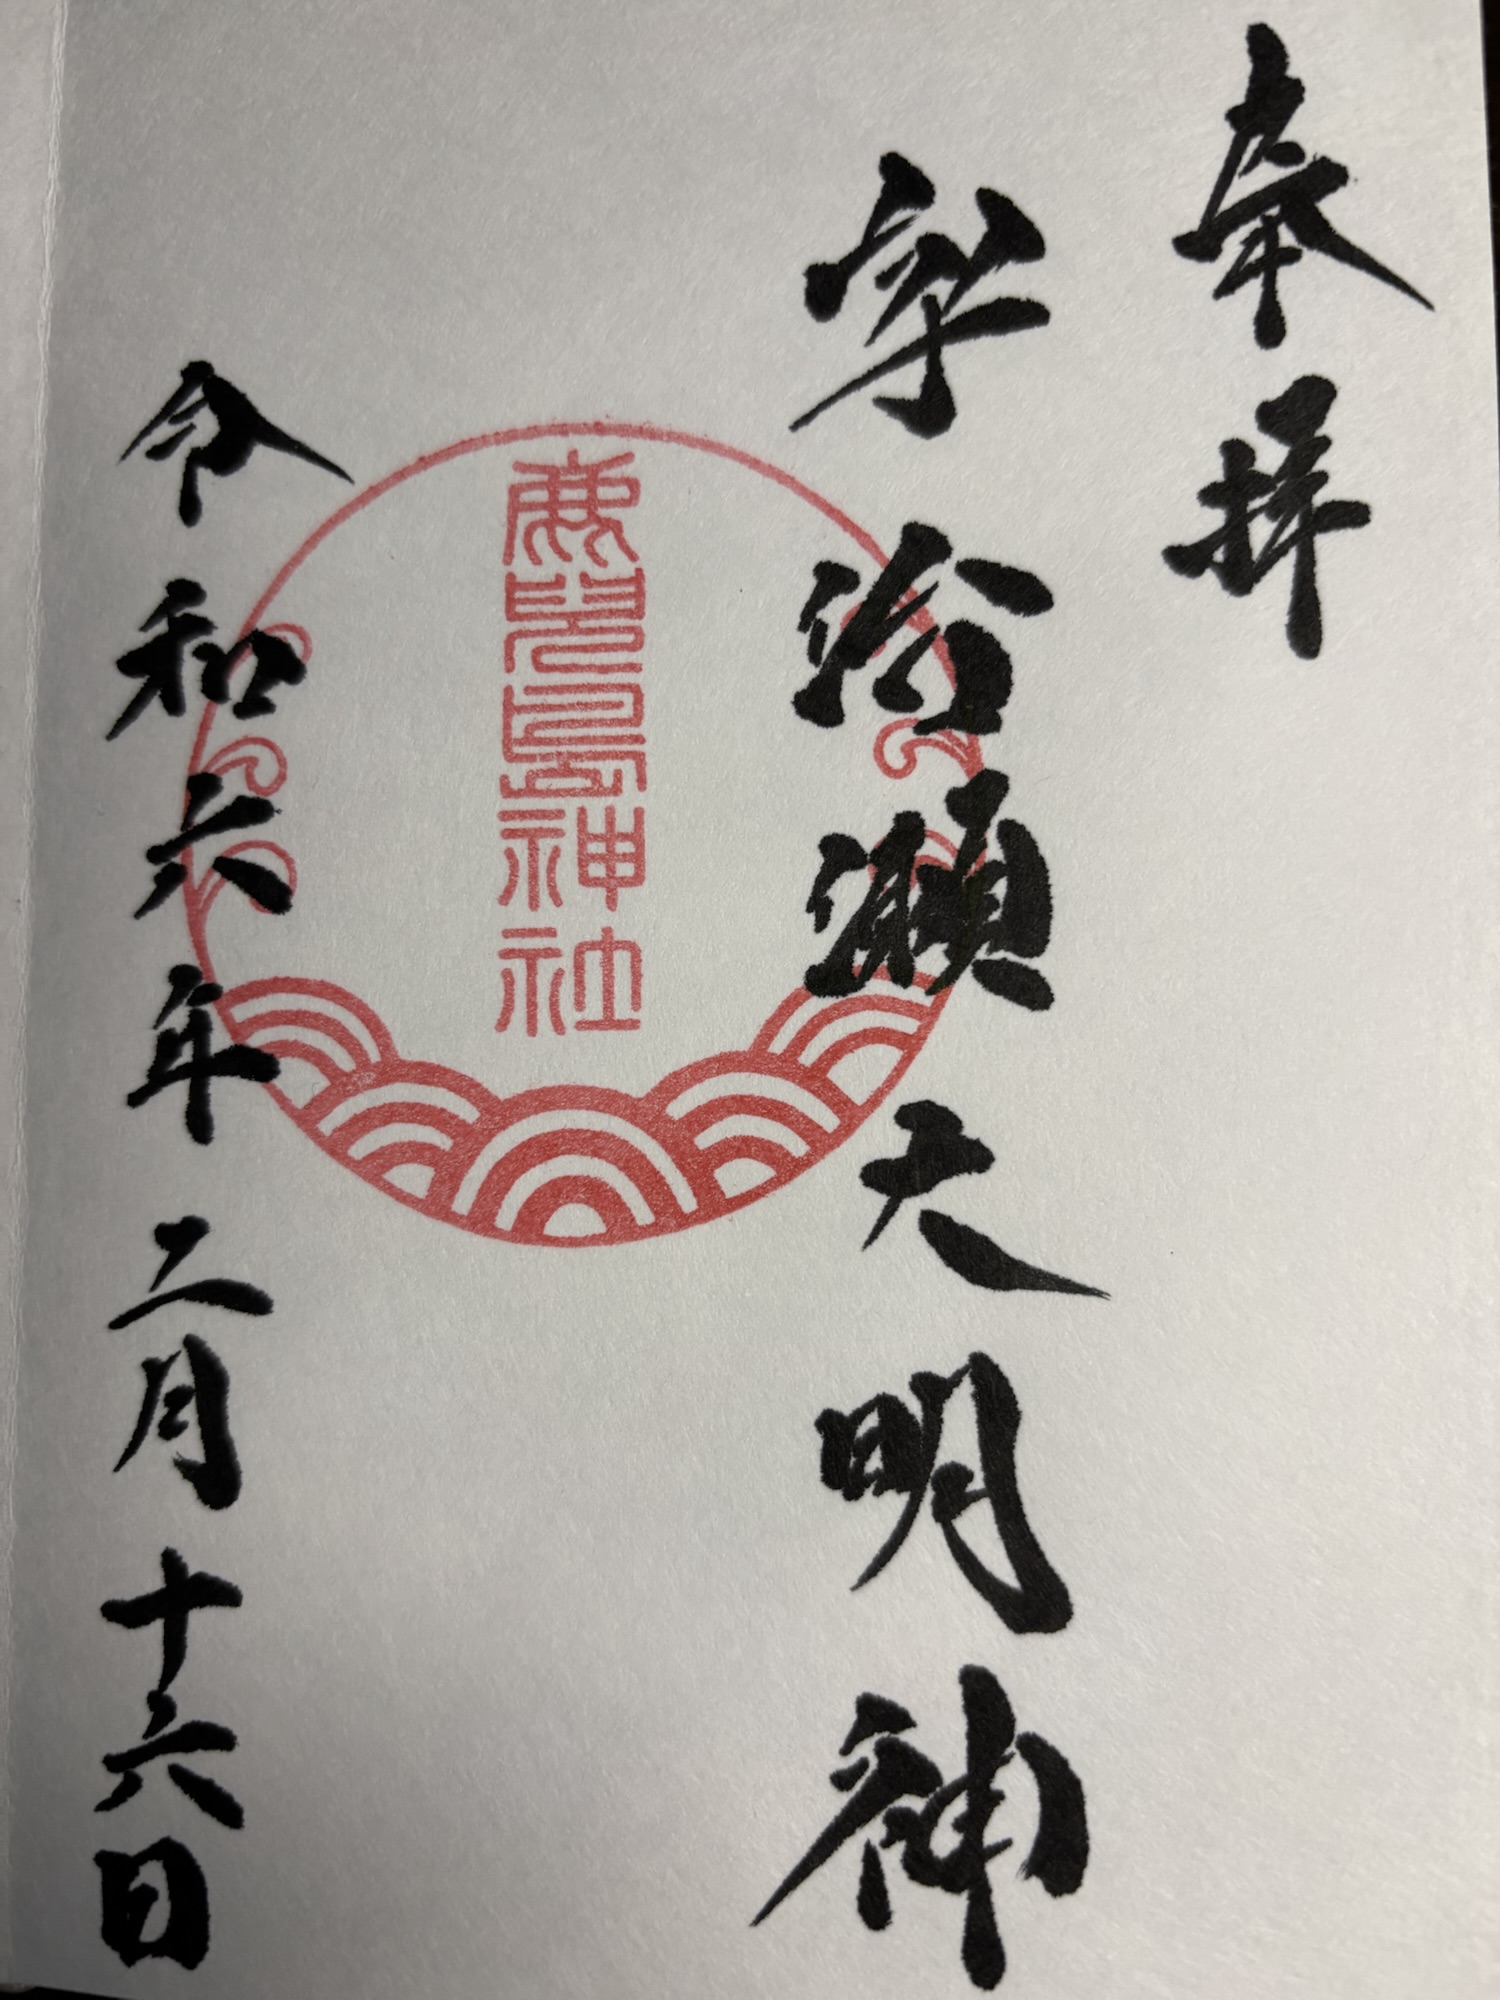 奉拝
宇治瀬大明神
鹿児島神社
令和六年二月十六日